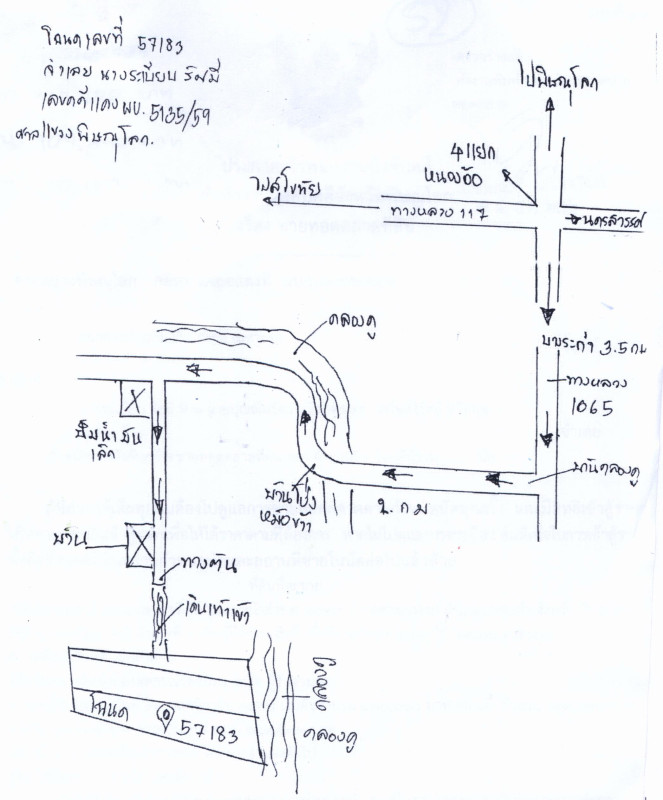 โฉนดเลขที่ 57183
จำเลย นางระเบียบ รัศมี
เลขคดีแดง ผบ. 5135/59
ศาลแขวงพิษณุโลก.
ไปพิษณุโลก
4แยก
หนองอ้อ
ไปสุโขทัย
ทางหลวง 117
นครสวรรค์
คลองคู
บางระกำ 3.5 กม
ทางหลวง
1065
X
ปั๊มน้ำมัน
เล็ก
บ้านคลองคู
บ้านโปร่ง
หม้อข้าว
2. กม
บ้าน
X
ทางตัน
เดินเท้าเข้า
โฉนด 57183
คลองคู